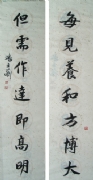 每見養和方博大
但需作達即高明